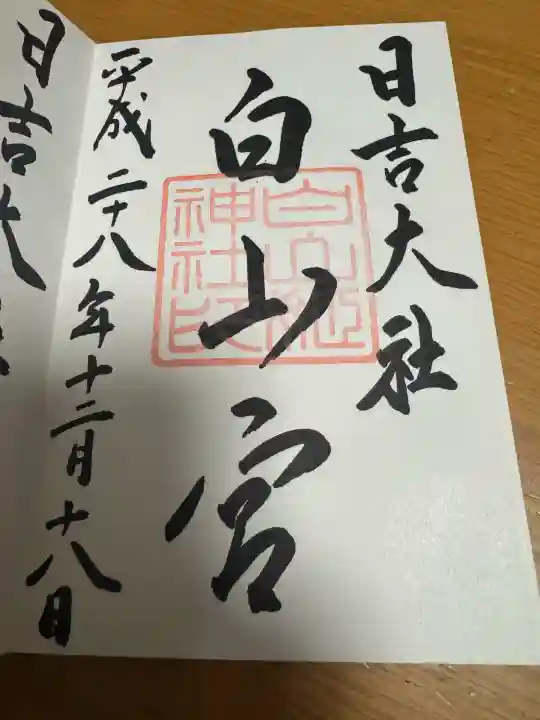 日吉大社
白山宮
白山姫
神社印
平成二十八年十二月十八日
日吉大社